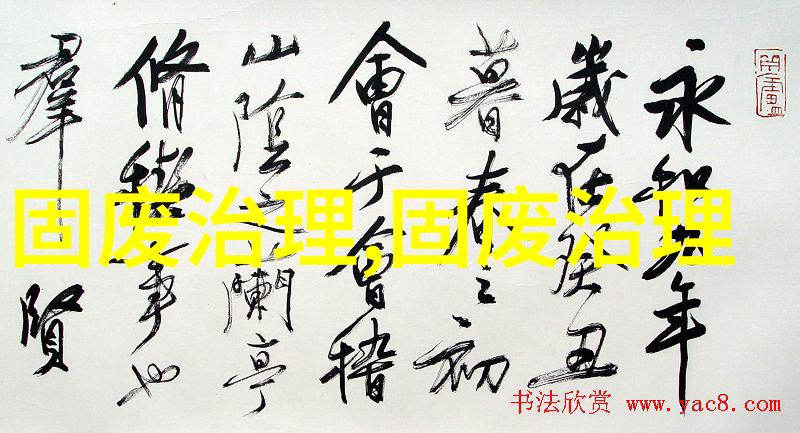 永和九年
歲在癸丑
暮春之初
會于會稽
山陰之蘭亭
脩稧事也
羣賢
固废治理,固废治理
书法欣赏 www.yac8.com